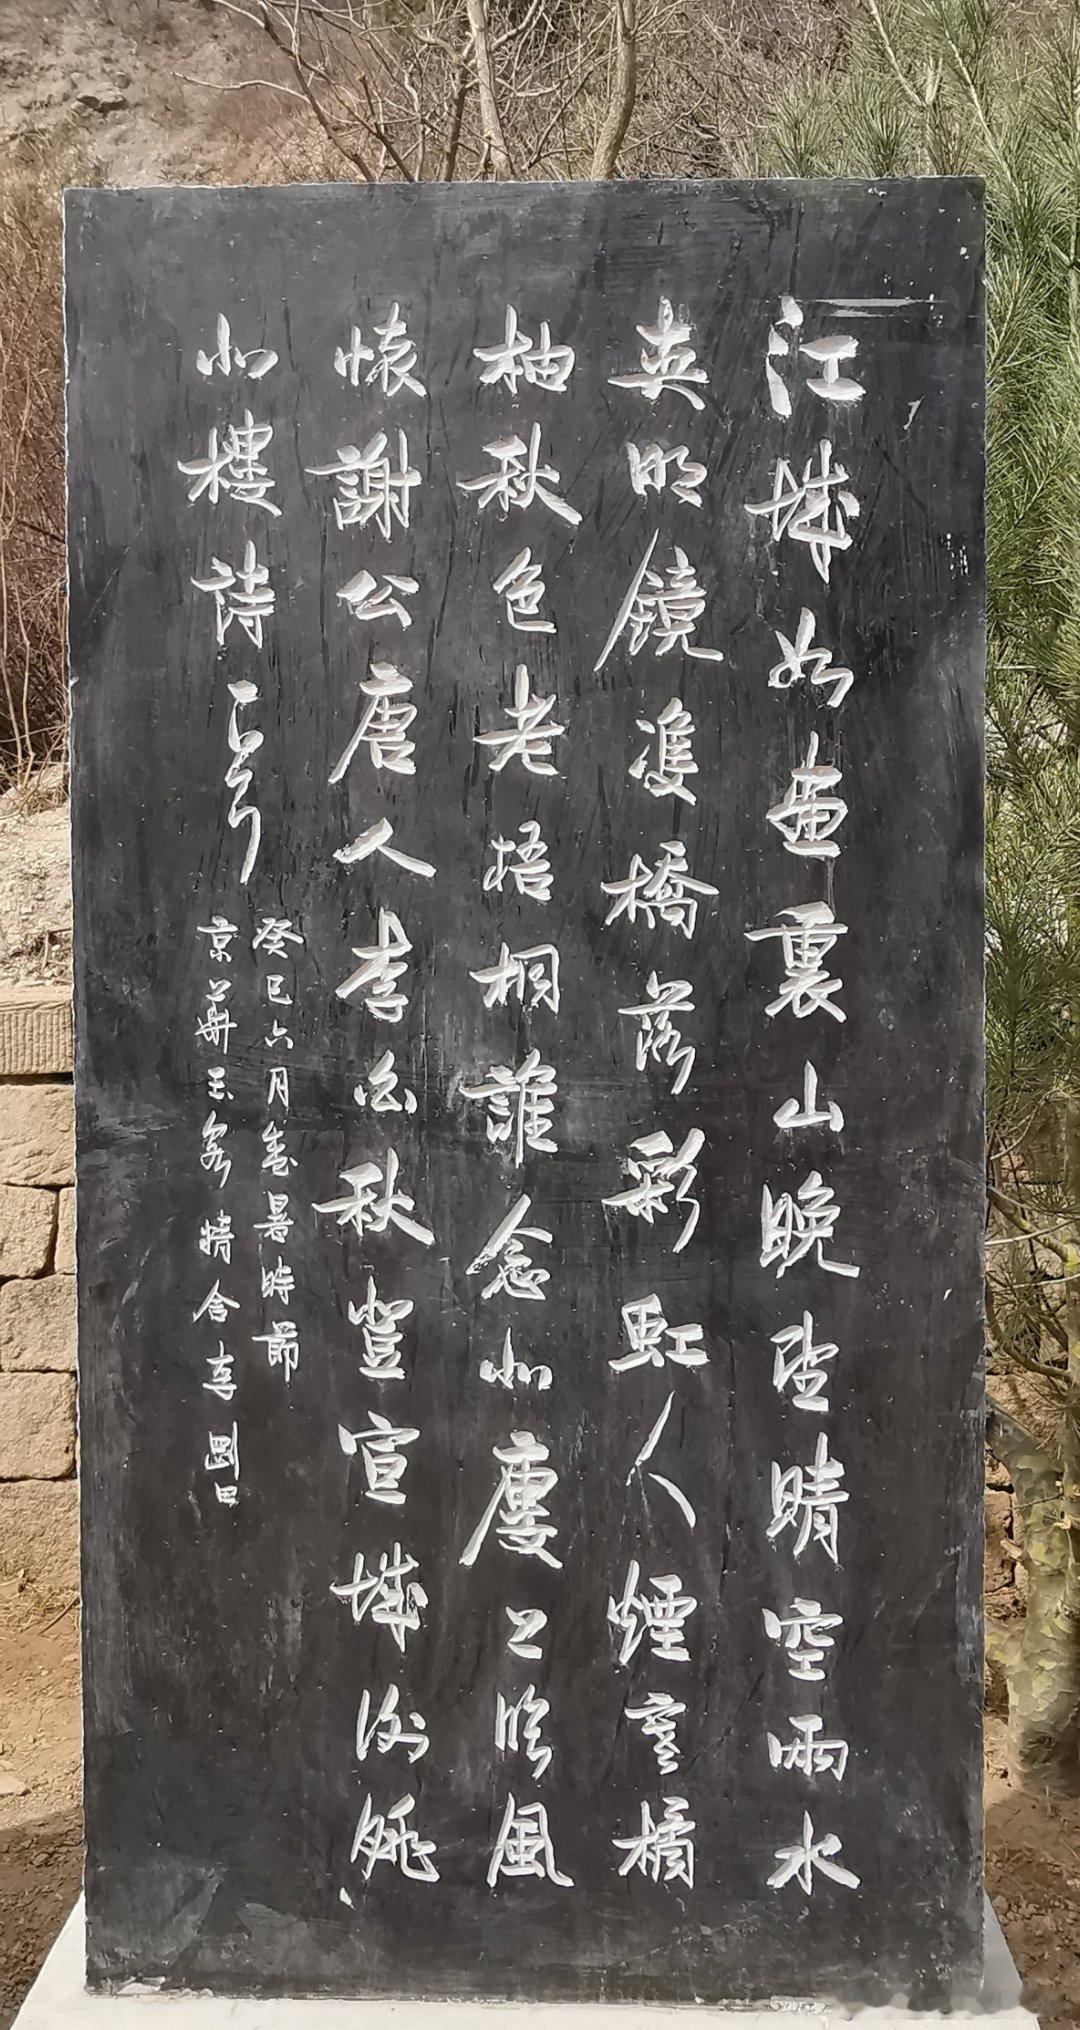 江城如畫裏山晚望晴空雨水
夾明鏡雙橋落彩虹人煙寒橘
柚秋色老梧桐誰念北廔上臨風
懷謝公唐人李白秋登宣城謝朓
北樓詩一首
癸巳六月盛暑時節
京華玉精舍李剛田